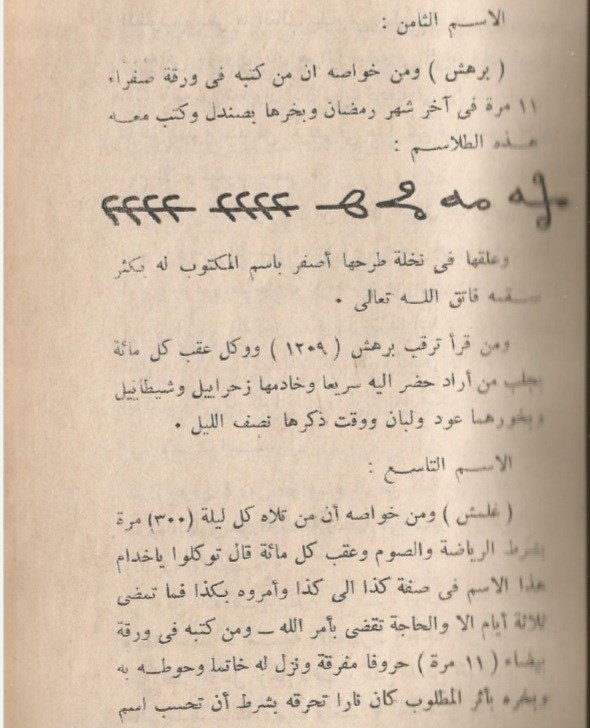 الاسم الثامن :
( برهش ) ومن خواصه ان من كتبه فى ورقة صفراء
١١ مرة فى آخر شهر رمضان وبخرها بصندل وكتب معه
هذه الطلاسم :
وعلقها فى نخلة طرحها أصفر باسم المكتوب له بكثر
فاتق الله تعالى ٠
ومن قرأ ترقب برهش ( ١٢٠٩ ) ووكل عقب كل مائة
بجلب من أراد حضر اليه سريعا وخادمها زحراييل وشيطاييل
وبخورهما عود ولبان ووقت ذكرها نصف الليل ٠
الاسم التاسع :
( غلمش ) ومن خواصه أن من تلاه كل ليلة (٣٠٠) مرة
بشرط الرياضة والصوم وعقب كل مائة قال توكلوا ياخدام
هذا الاسم فى صفة كذا الى كذا وأمروه بكذا فما تمضى
ثلاثة أيام الا والحاجة تقضى بأمر الله ــ ومن كتبه فى ورقة
بيضاء ( ١١ مرة ) حروفا مفرقة ونزل له خاتما وحوطه به
وبخره بأثر المطلوب كان نارا تحرقه بشرط أن تحسب اسم